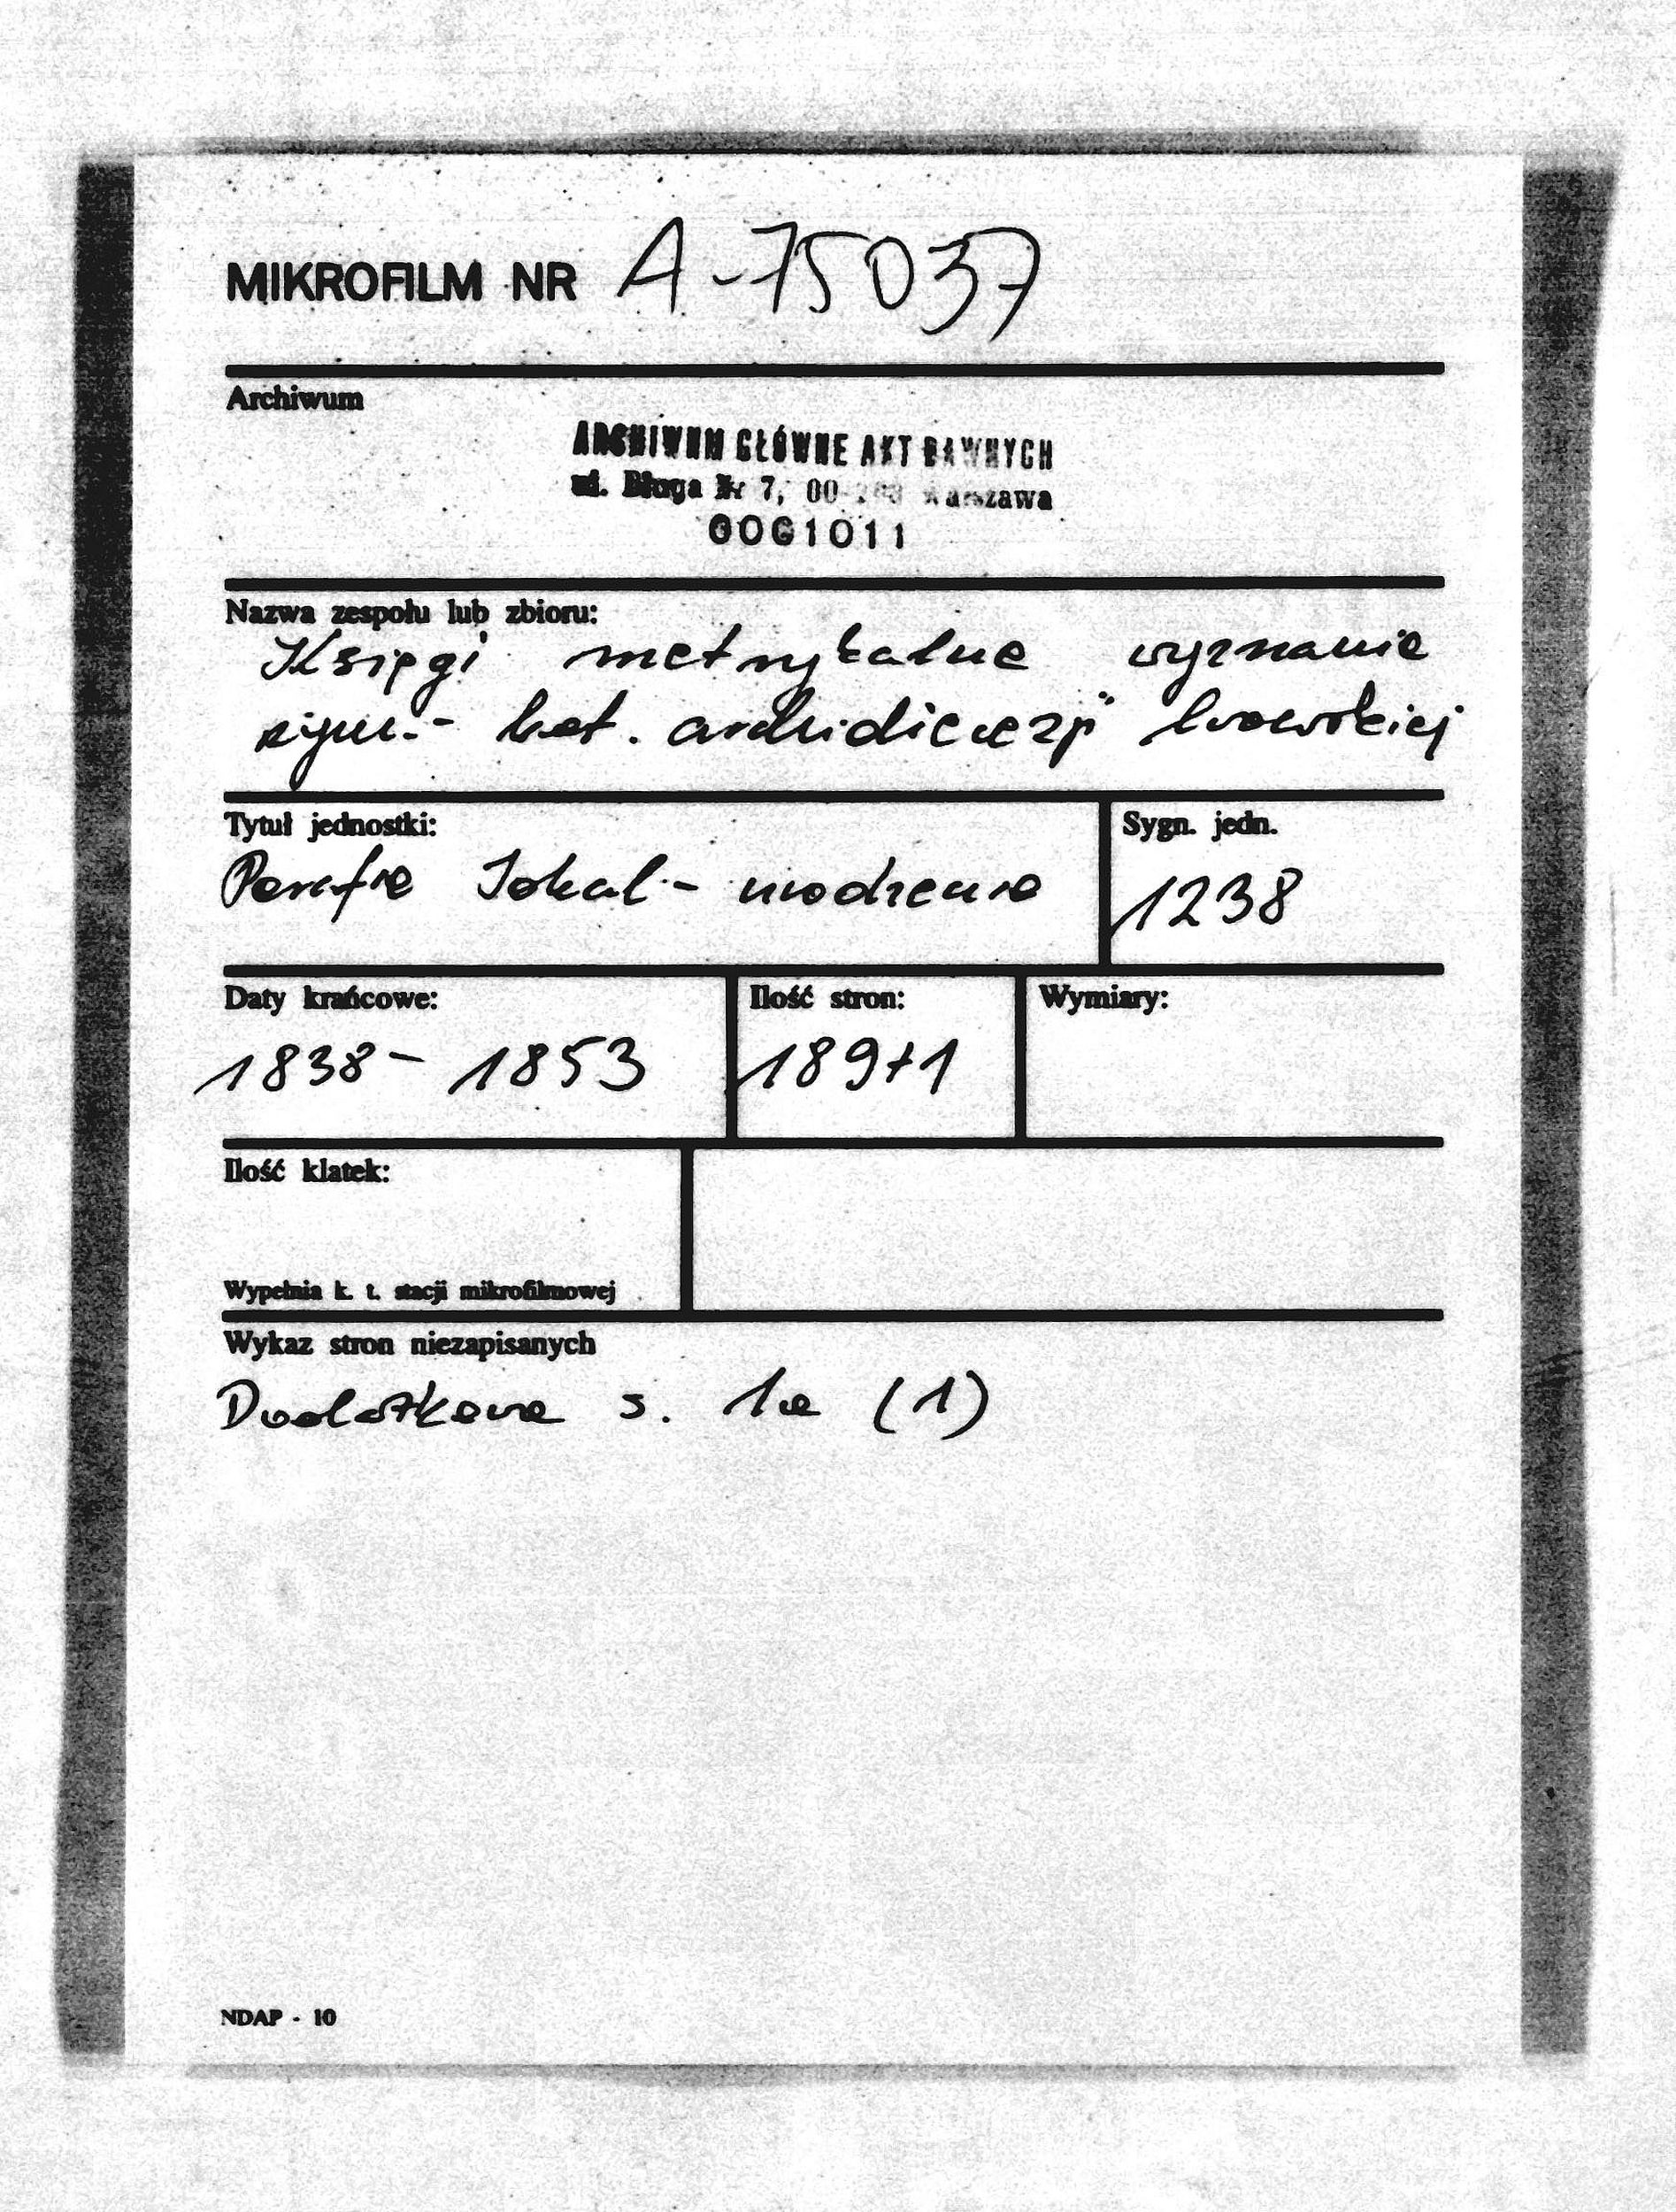 MIKROFILM NR A-75037
Archiwum
ARCHIWUM GŁÓWNE AKT DAWNYCH
ul. Długa Nr 7, 00- Warszawa
0061011
Nazwa zespołu lub zbioru:
Księgi metrykalne wyznanie
rzym.- kat. archidiecezji lwowskiej
Tytuł jednostki:
Sygn. jedn.
Parafie Sokal - urodzenie
1238
Daty krańcowe:
Ilość stron:
Wymiary:
1838 - 1853
189+1
Ilość klatek:
Wypełnia k. t. stacji mikrofilmowej
Wykaz stron niezapisanych
Dodatkowe s. 1a (1)
NDAP - 10